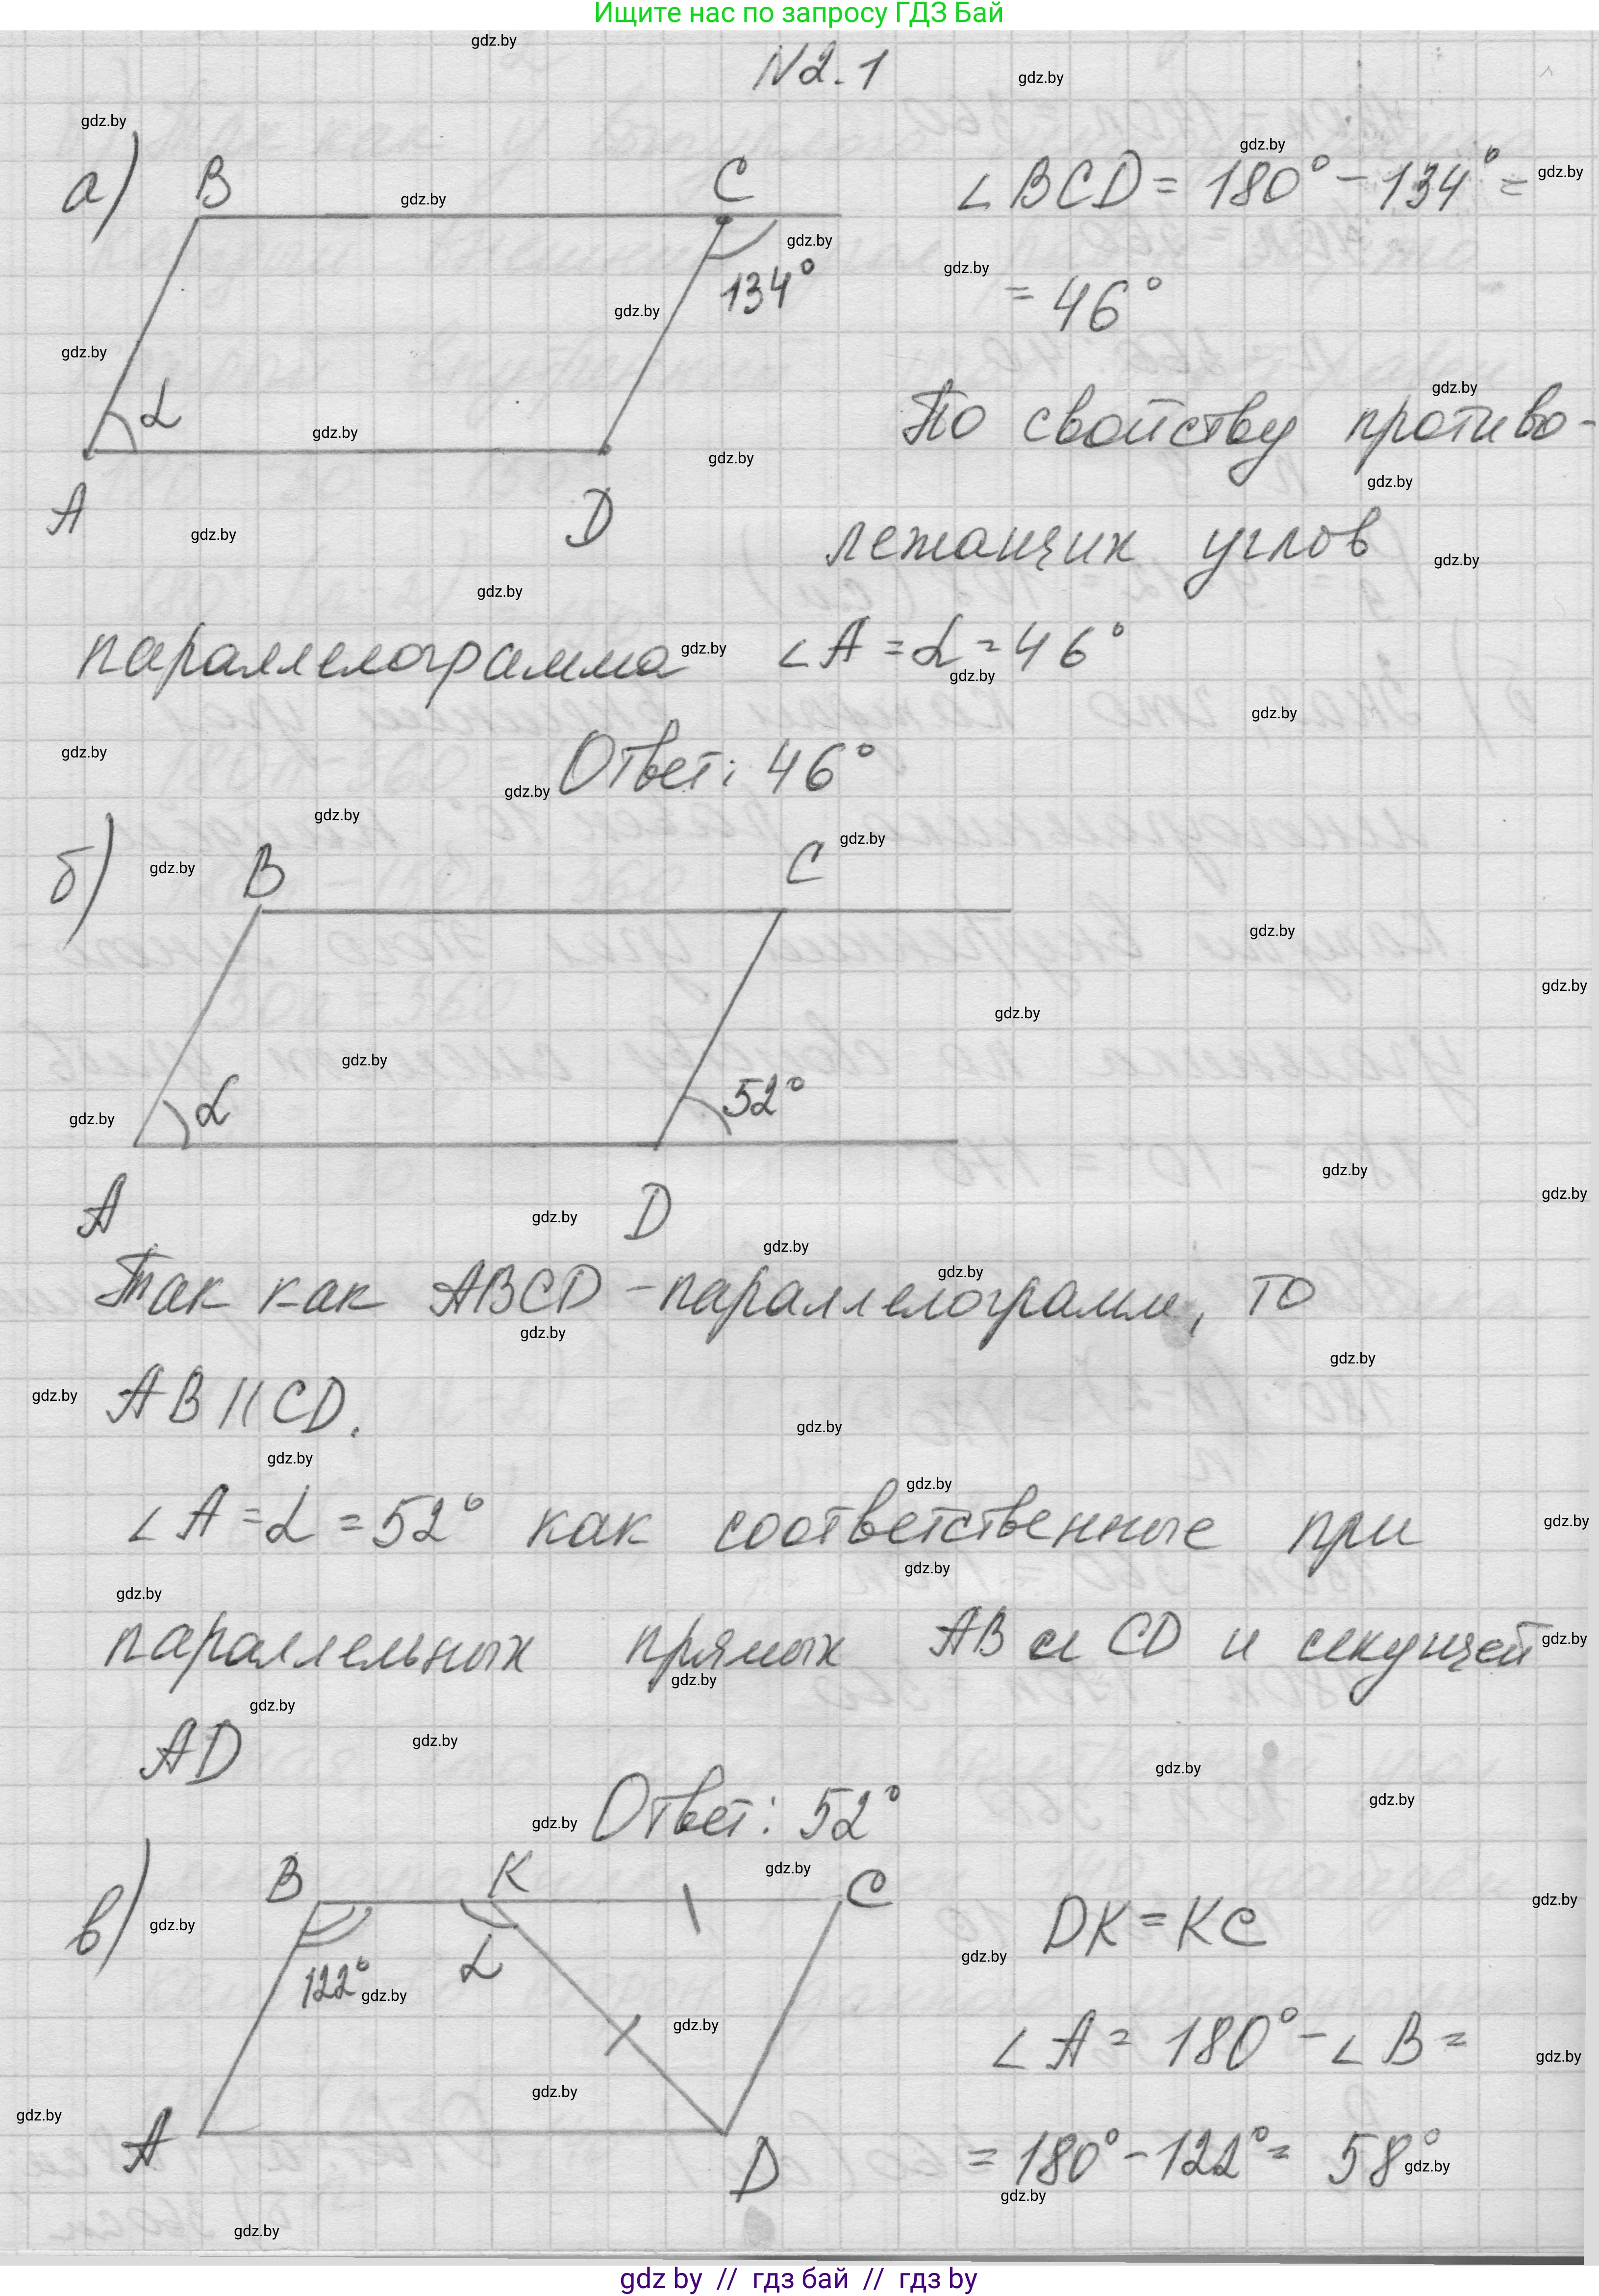 Ищите нас по запросу ГДЗ Бай
N2.1
а)
B
C
134°
α
A
D
∠BCD = 180° - 134° =
= 46°
По свойству противо-
лежащих углов
параллелограмма ∠A = α = 46°
Ответ: 46°
б)
B
C
α
52°
A
D
Так как ABCD - параллелограмм, то
AB || CD.
∠A = α = 52° как соответственные при
параллельных прямых AB и CD и секущей
AD
Ответ: 52°
в)
B
K
C
122°
α
A
D
DK = KC
∠A = 180° - ∠B =
= 180° - 122° = 58°
gdz.by
gdz by // гдз бай // гдз by